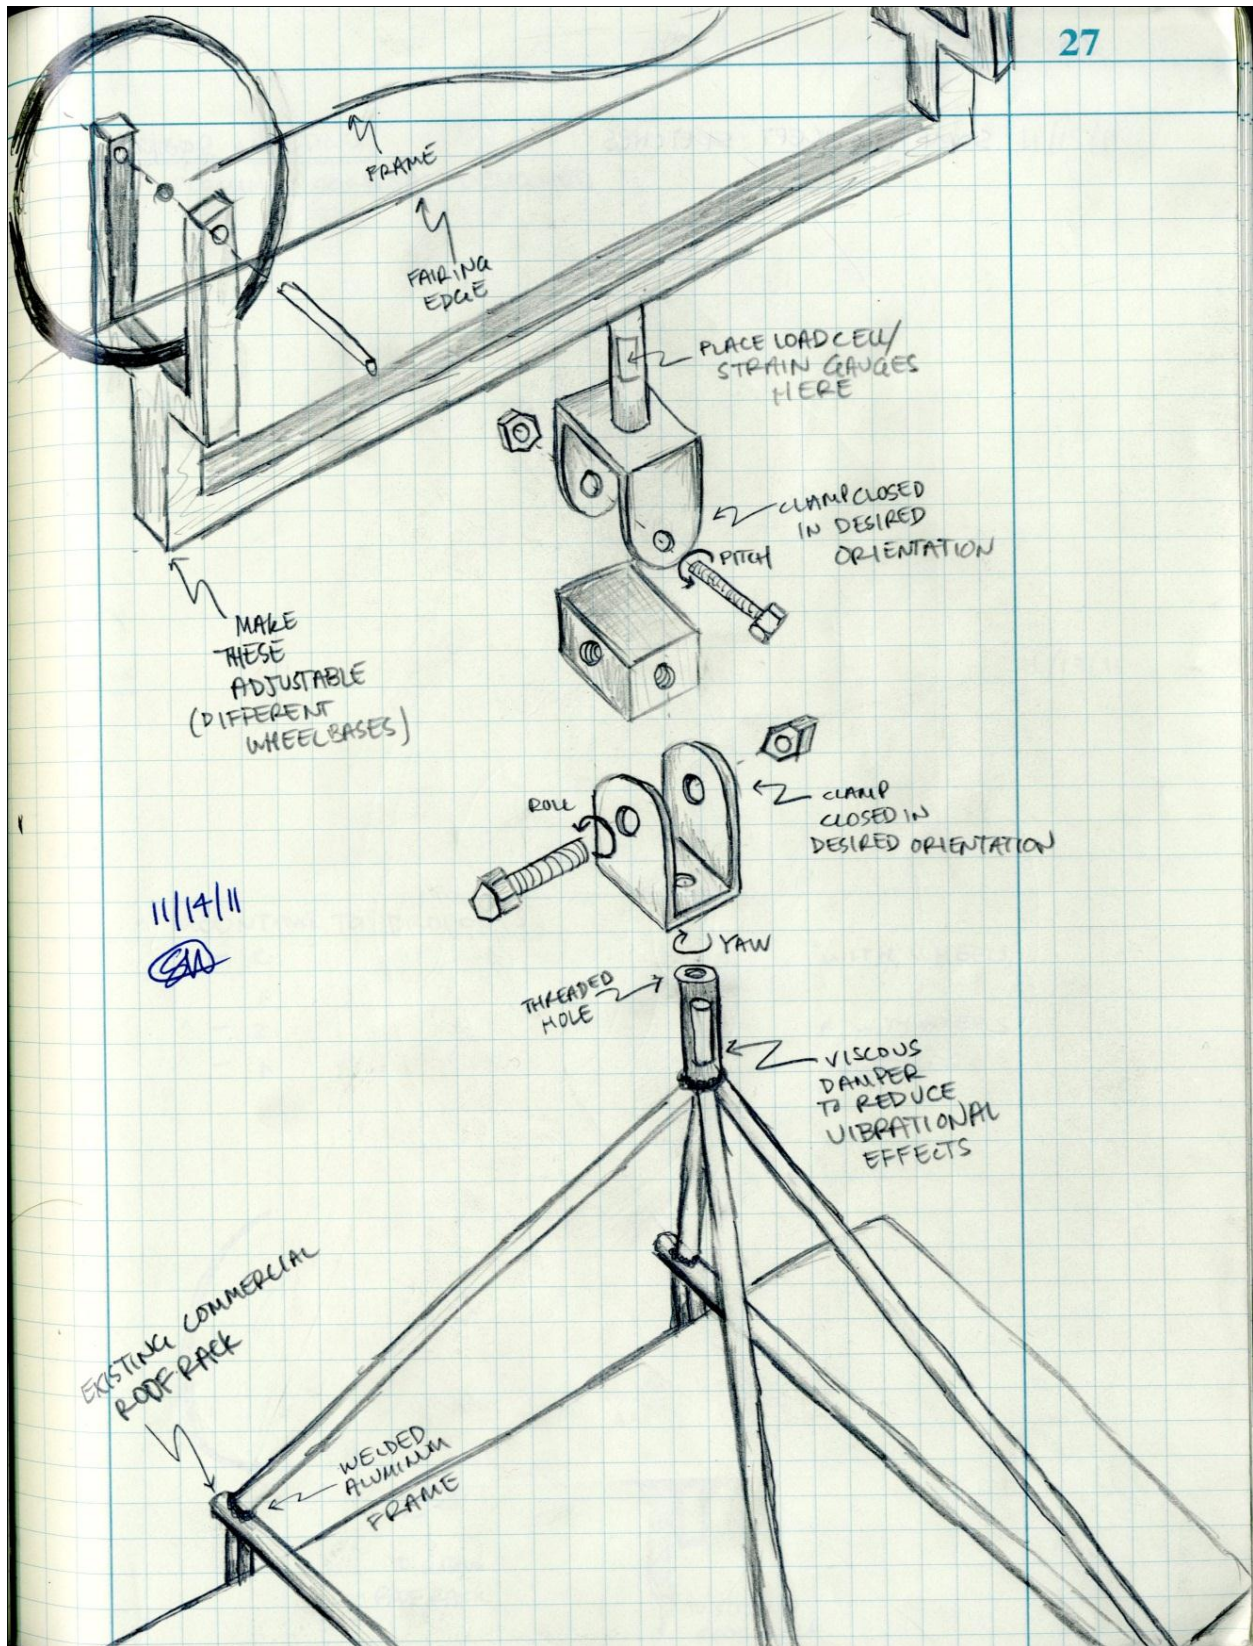 27
FRAME
FAIRING
EDGE
PLACE LOAD CELL/
STRAIN GAUGES
HERE
CLAMP CLOSED
IN DESIRED
ORIENTATION
PITCH
MAKE
THESE
ADJUSTABLE
(DIFFERENT
WHEELBASES)
ROLL
CLAMP
CLOSED IN
DESIRED ORIENTATION
11/14/11
YAW
THREADED
HOLE
VISCOUS
DAMPER
TO REDUCE
VIBRATIONAL
EFFECTS
EXISTING COMMERCIAL
ROOF RACK
WELDED
ALUMINUM
FRAME